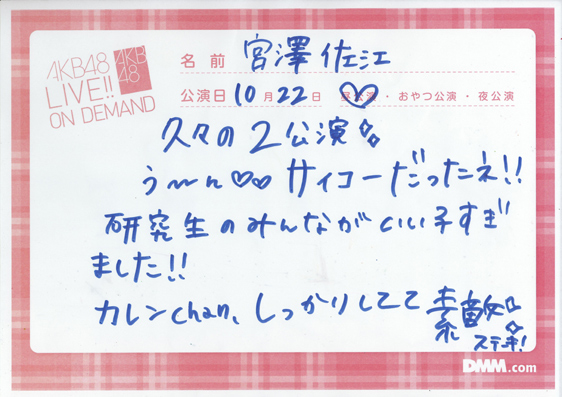 AKB48
LIVE!!
ON DEMAND
AKB
48
名前 宮澤佐江
公演日 10月22日 昼公演・おやつ公演・夜公演
久々の2公演
う〜ん♡♡サイコーだったネ!!
研究生のみんながいい子すぎ
ました!!
カレンchan、しっかりしてて素敵
ステキ!
DMM.com